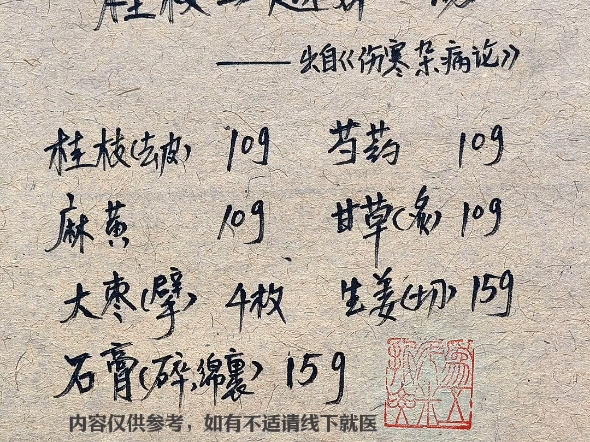 ——出自《伤寒杂病论》
桂枝(去皮) 10g 芍药 10g
麻黄 10g 甘草(炙) 10g
大枣(擘) 4枚 生姜(切) 15g
石膏(碎,绵裹) 15g
内容仅供参考，如有不适请线下就医